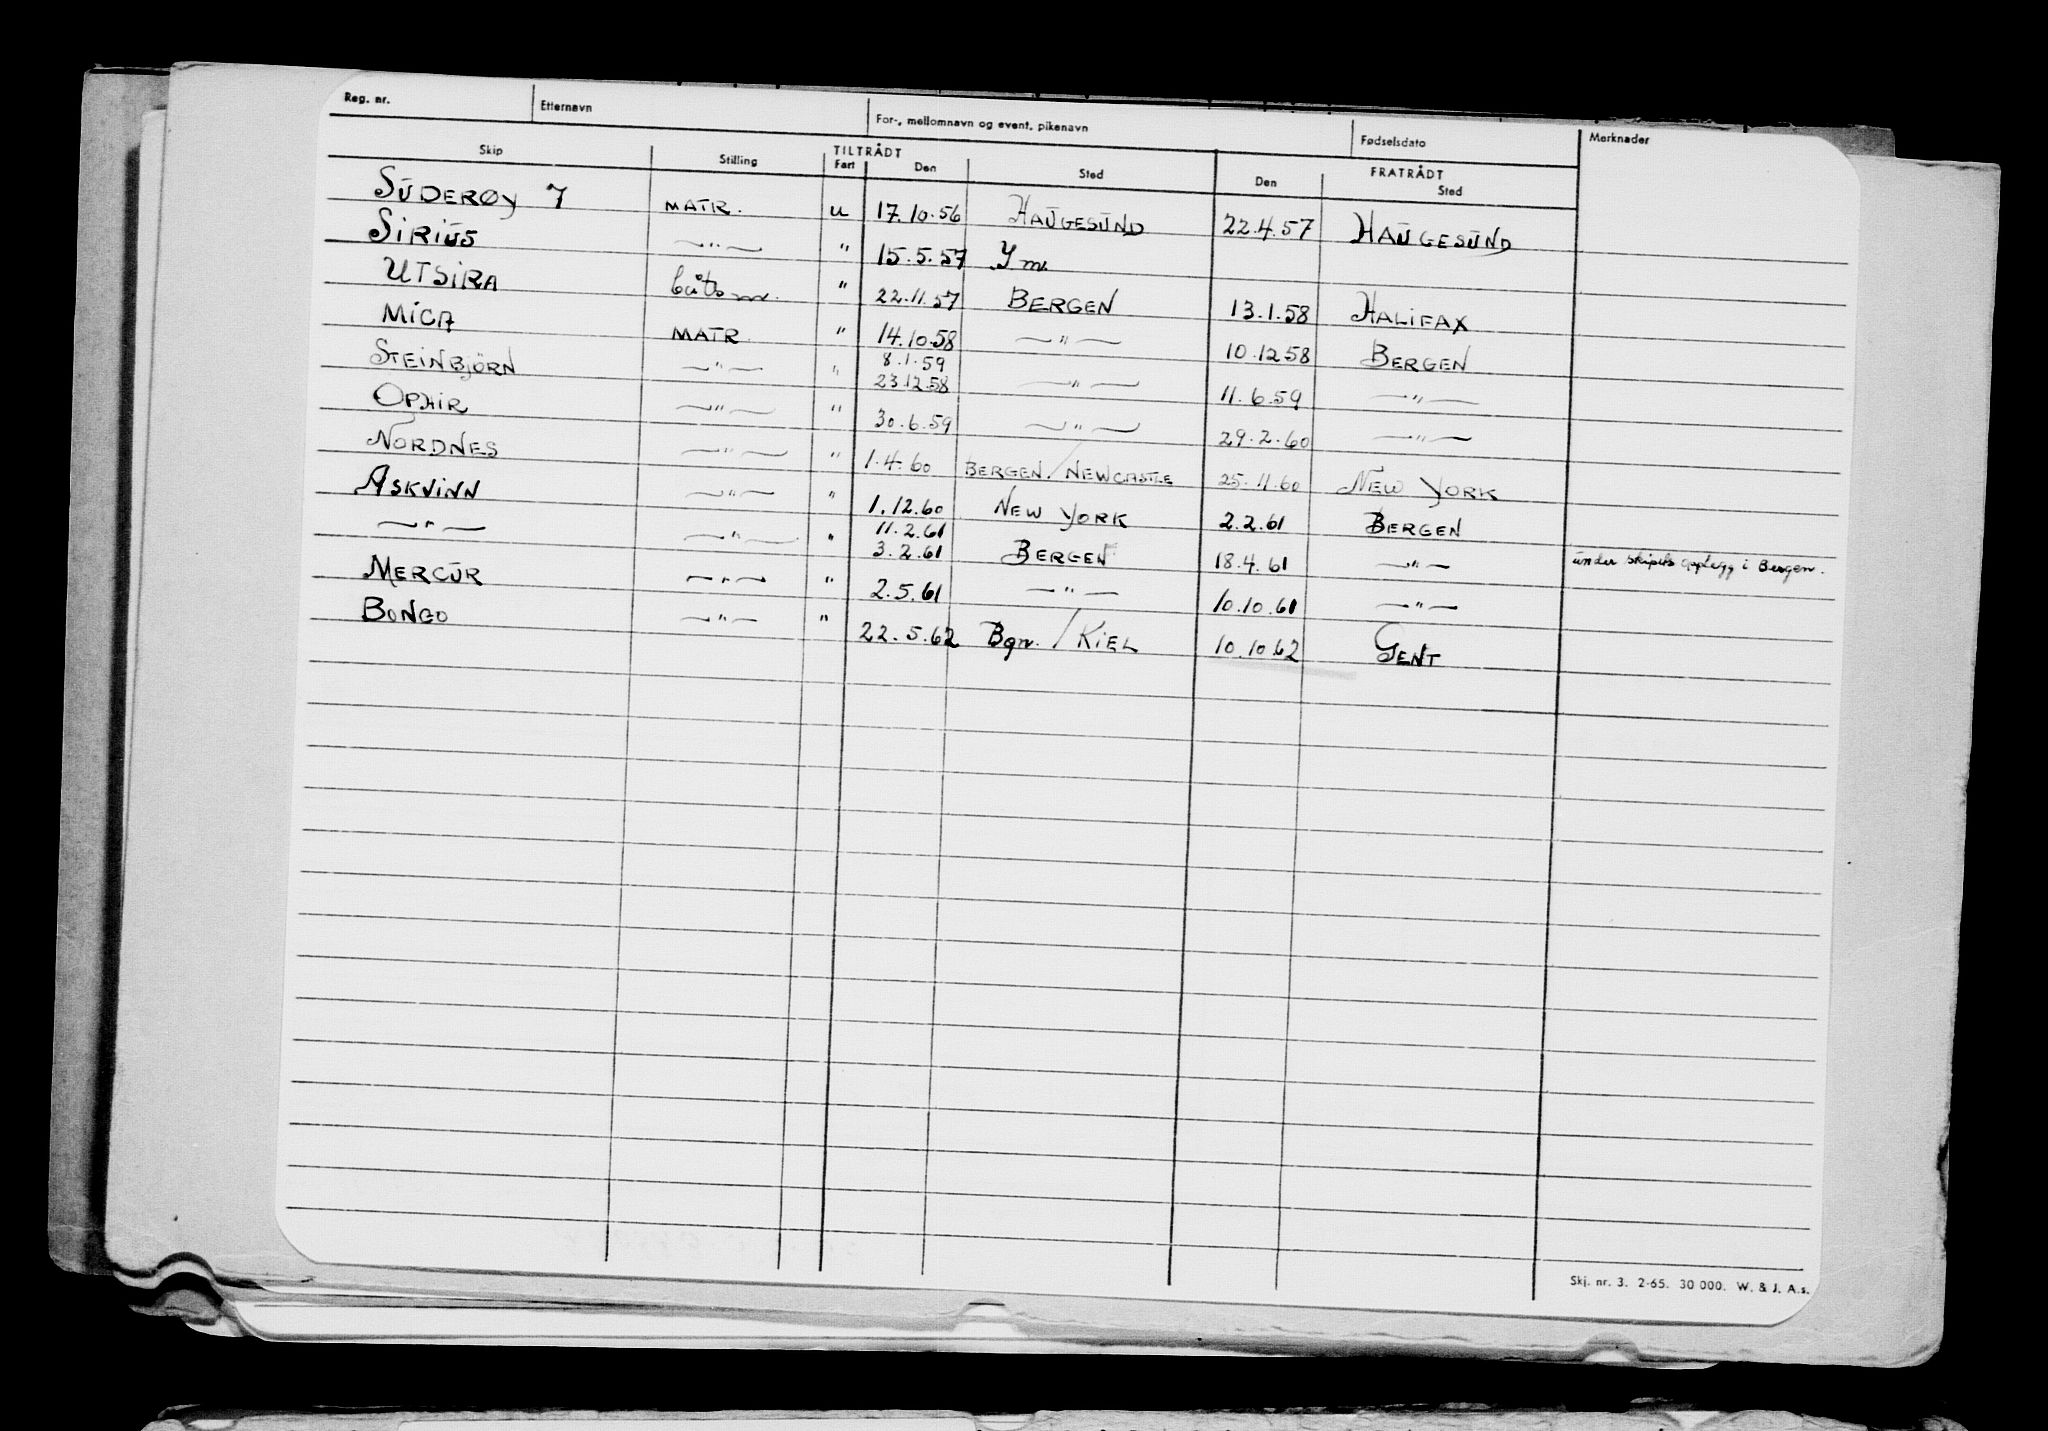 Reg. nr. Etternavn For-, mellomnavn og event. pikenavn Fødselsdato Merknader
Skip Stilling TILTRÅDT FRATRÅDT
Fart Den Sted Den Sted
SŪDERØY 7 MATR. u 17.10.56 HAŪGESŪND 22.4.57 HAŪGESŪND
SIRIŪS —"— " 15.5.57
UTSIRA båtsm. " 22.11.57 BERGEN 13.1.58 HALIFAX
MICA MATR. " 14.10.58 —"— 10.12.58 BERGEN
8.1.59
STEINBJÖRN —"— " 23.12.58 —"— 11.6.59 —"—
OPHIR —"— " 30.6.59 —"— 29.2.60 —"—
NORDNES —"— " 1.4.60 BERGEN / NEWCASTLE 25.11.60 NEW YORK
ASKVINN —"— " 1.12.60 NEW YORK 2.2.61 BERGEN
11.2.61
—"— —"— " 3.2.61 BERGEN 18.4.61 —"— ūnder skipets opplegg i Bergen.
MERCŪR —"— " 2.5.61 —"— 10.10.61 —"—
BONGO —"— " 22.5.62 Bgn. / KIEL 10.10.62 GENT
Skj. nr. 3. 2-65. 30 000. W. & J. A.s.